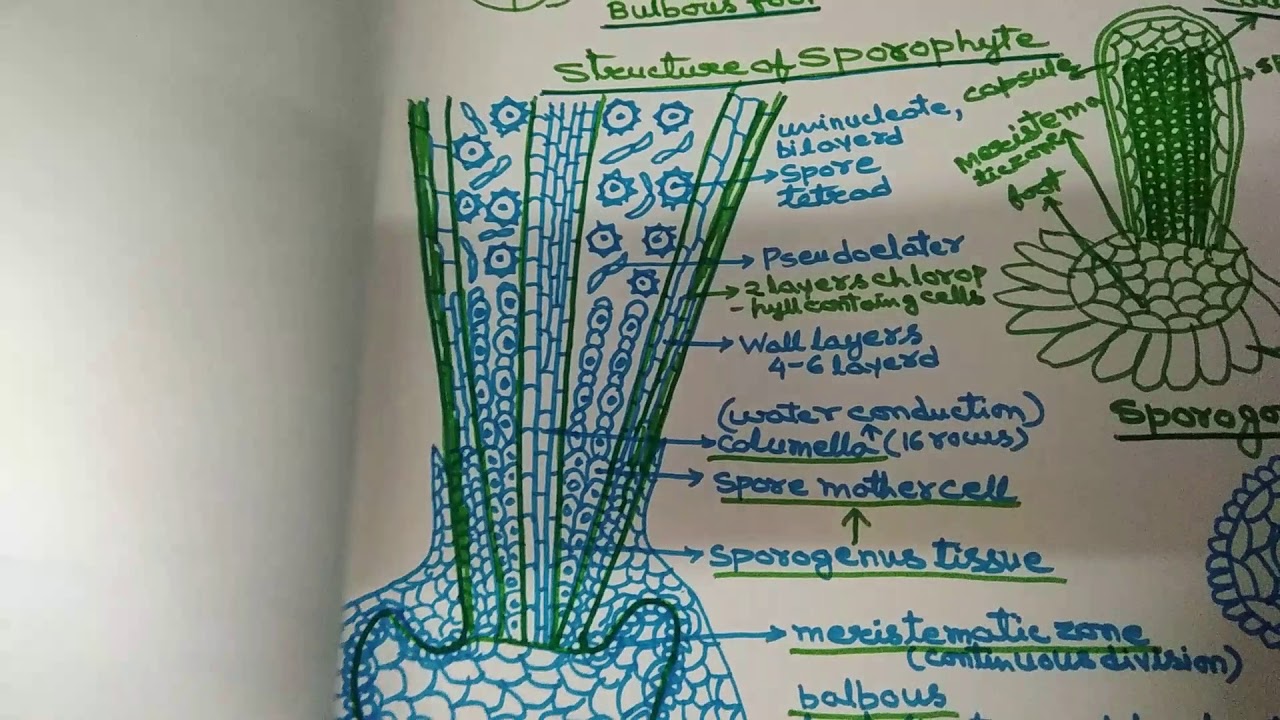 Bulbous foot
Structure of Sporophyte
capsule
Meristema
ticzone
foot
uninucleate,
bilayerd
Spore
tetrad
Pseudoelater
2 layers chlorop
-hyll containg cells
Wall layers
4-6 layerd
(water conduction)
columella (16 rows)
Spore mother cell
Sporogenus tissue
meristematic zone
(continuous division)
balbous
Sporogo